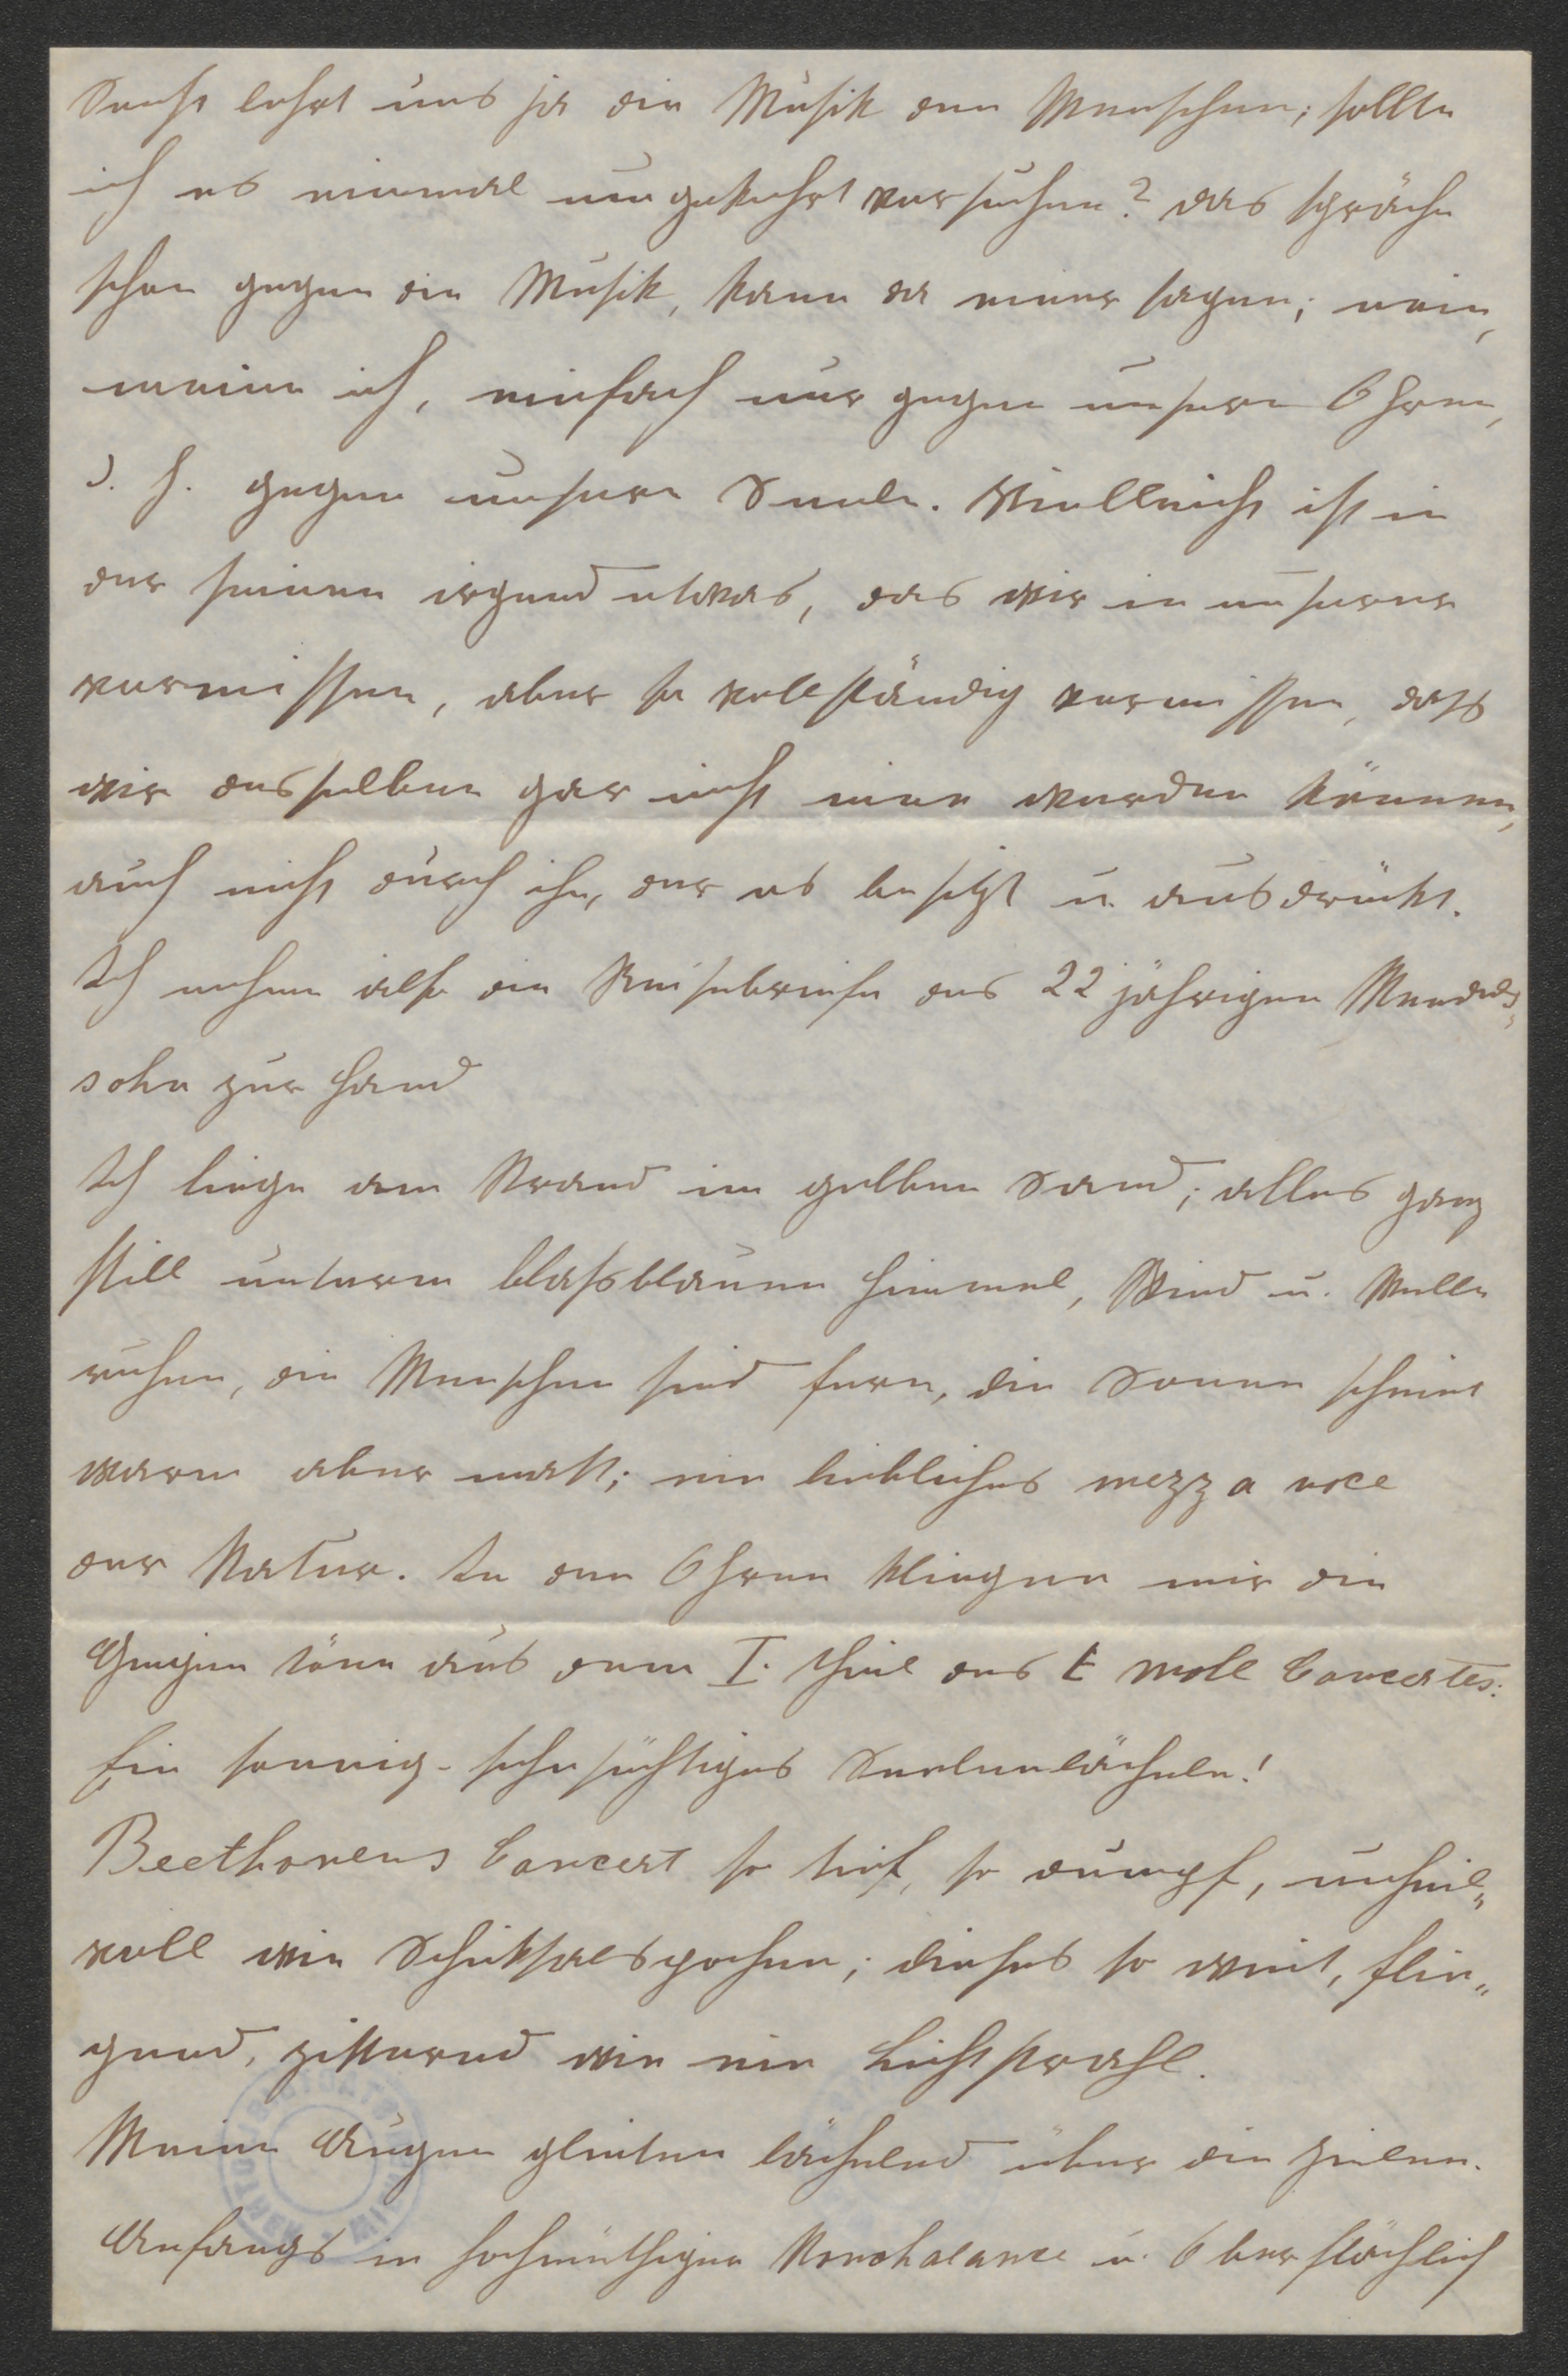 Sonst lehrt uns ja die Musik den Menschen; sollte
ich es einmal umgekehrt versuchen? das spräche
schon gegen die Musik, kann da einer sagen; nein,
meine ich, einfach nur gegen unsere Ohren,
d. h. gegen unsere Seele. Vielleicht ist in
der seinen irgend etwas, das wir in unserer
vermissen, aber so vollständig vermissen, dass
wir desselben gar nicht inne werden können,
auch nicht durch ihn, der es besitzt u. ausdrückt.
Ich nehme also die Reisebriefe des 22 jährigen Mendels=
sohn zur Hand
Ich liege am Strand im gelben Sand; alles ganz
still unterm blaßblauen Himmel, Wind u. Welle
ruhen, die Menschen sind fern, die Sonne scheint
warm aber matt; ein liebliches mezza voce
der Natur. In den Ohren klingen mir die
Geigentöne aus dem I. Theil des E moll Concertes:
Ein sonnig-sehnsüchtiges Seelenlächeln!
Beethovens Concert so tief, so dumpf, unheil=
voll wie Schicksalspochen; dieses so weit, flie=
gend, zitternd wie ein Lichtstrahl.
Meine Augen gleiten lächelnd über die Zeilen.
Anfangs in hochmüthiger Nonchalance u. Oberflächlich